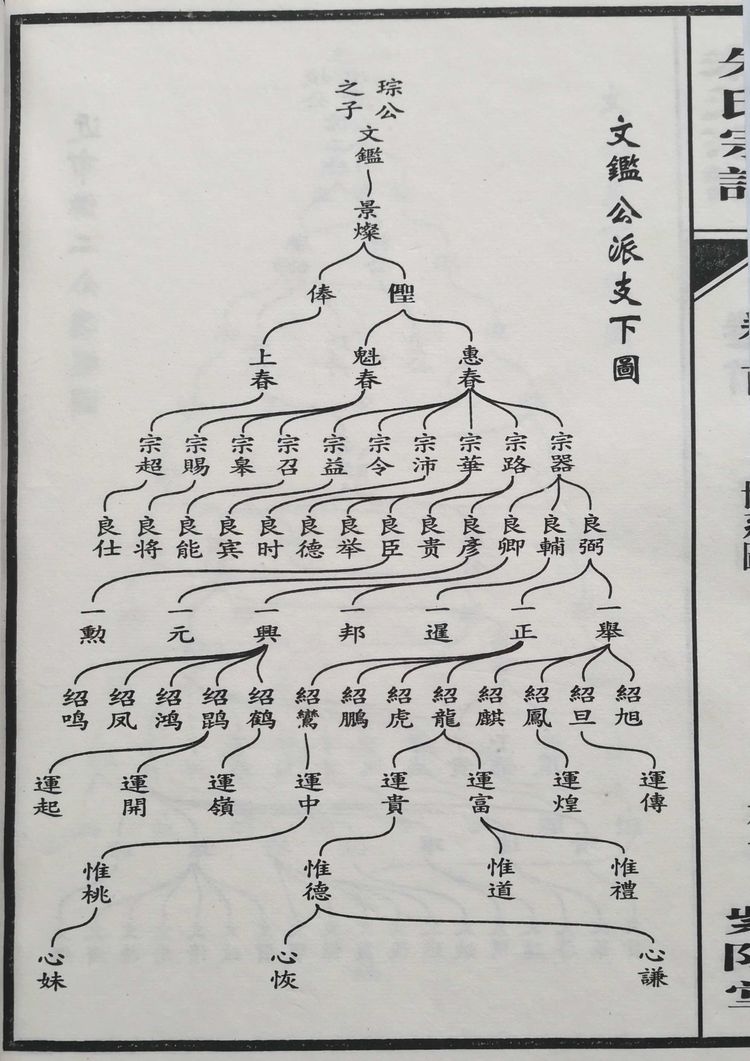 文鑑公派支下圖
琮公
之子
文鑑
景燦
俸
上春
魁春
惠春
宗超 宗賜 宗皋 宗召 宗益 宗令 宗沛 宗華 宗路 宗器
良仕 良将 良能 良宾 良时 良德 良举 良臣 良貴 良彥 良卿 良輔 良弼
一勲 一元 一興 一邦 一暹 一正 一舉
绍鸣 绍凤 绍鸿 绍鹍 绍鹤 紹鸞 紹鵬 紹虎 紹龍 紹麒 紹鳳 紹旦 紹旭
運起 運開 運嶺 運中 運貴 運富 運煌 運傳
惟桃 惟德 惟道 惟禮
心妹 心恢 心謙